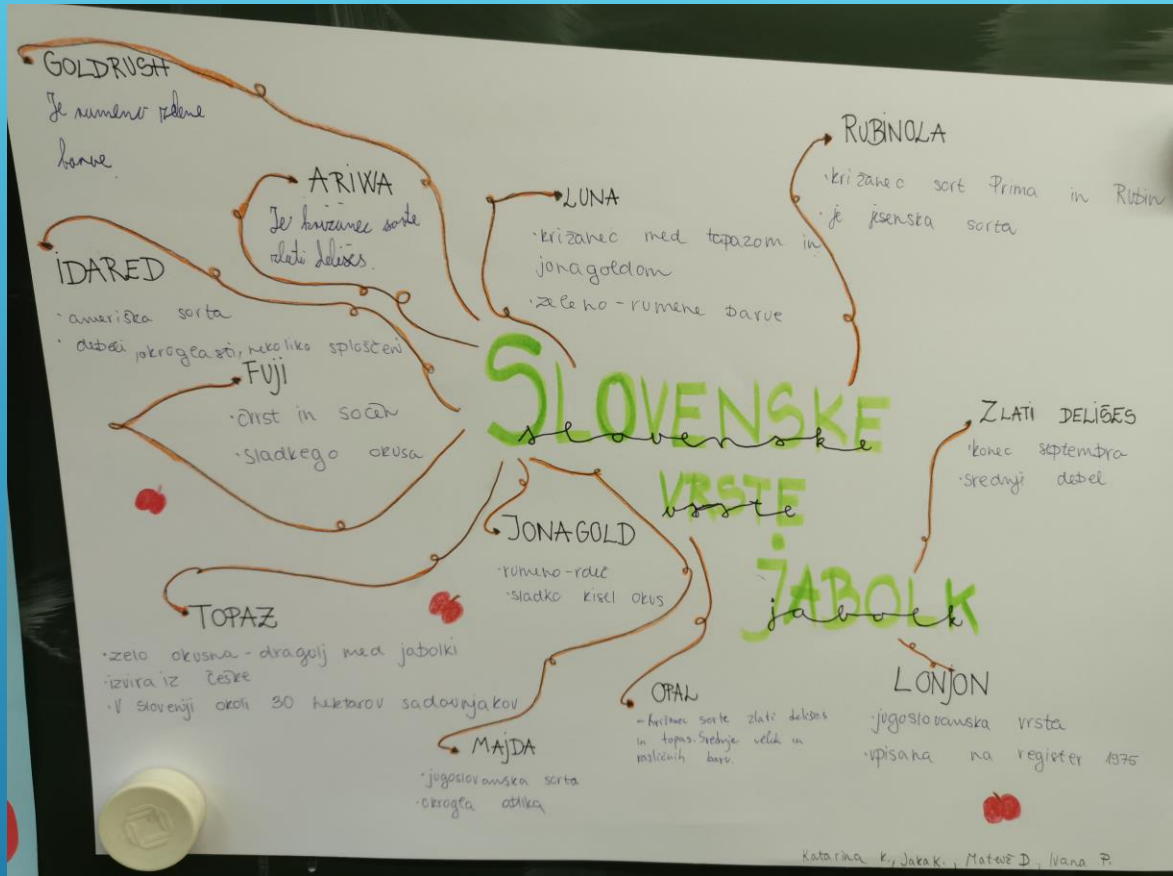 GOLDRUSH
Je rumeno zelene
barve.
ARIWA
Je križanec sorte
zlati delišes.
LUNA
• križanec med topazom in
jonagoldom
• zeleno-rumene barve
RUBINOLA
• križanec sort Prima in Rubin
• je jesenska sorta
IDARED
• ameriška sorta
• debeli, okroglasti, nekoliko sploščeni
FUJI
• čvrst in sočen
• sladkega okusa
SLOVENSKE
slovenske
VRSTE
vrste
JABOLK
jabolk
ZLATI DELIŠES
• konec septembra
• srednji debel
JONAGOLD
• rumeno-rdeč
• sladko kisel okus
TOPAZ
• zelo okusna - dragulj med jabolki
• izvira iz češke
• V sloveniji okoli 30 hektarov sadovnjakov
MAJDA
• jugoslovanska sorta
• okrogla oblika
OPAL
- križanec sorte zlati delišes
in topas. Srednje velik in
različnih barv.
LONJON
• jugoslovanska vrsta
• vpisana na register 1975
Katarina K., Jaka K., Matevž D., Ivana P.